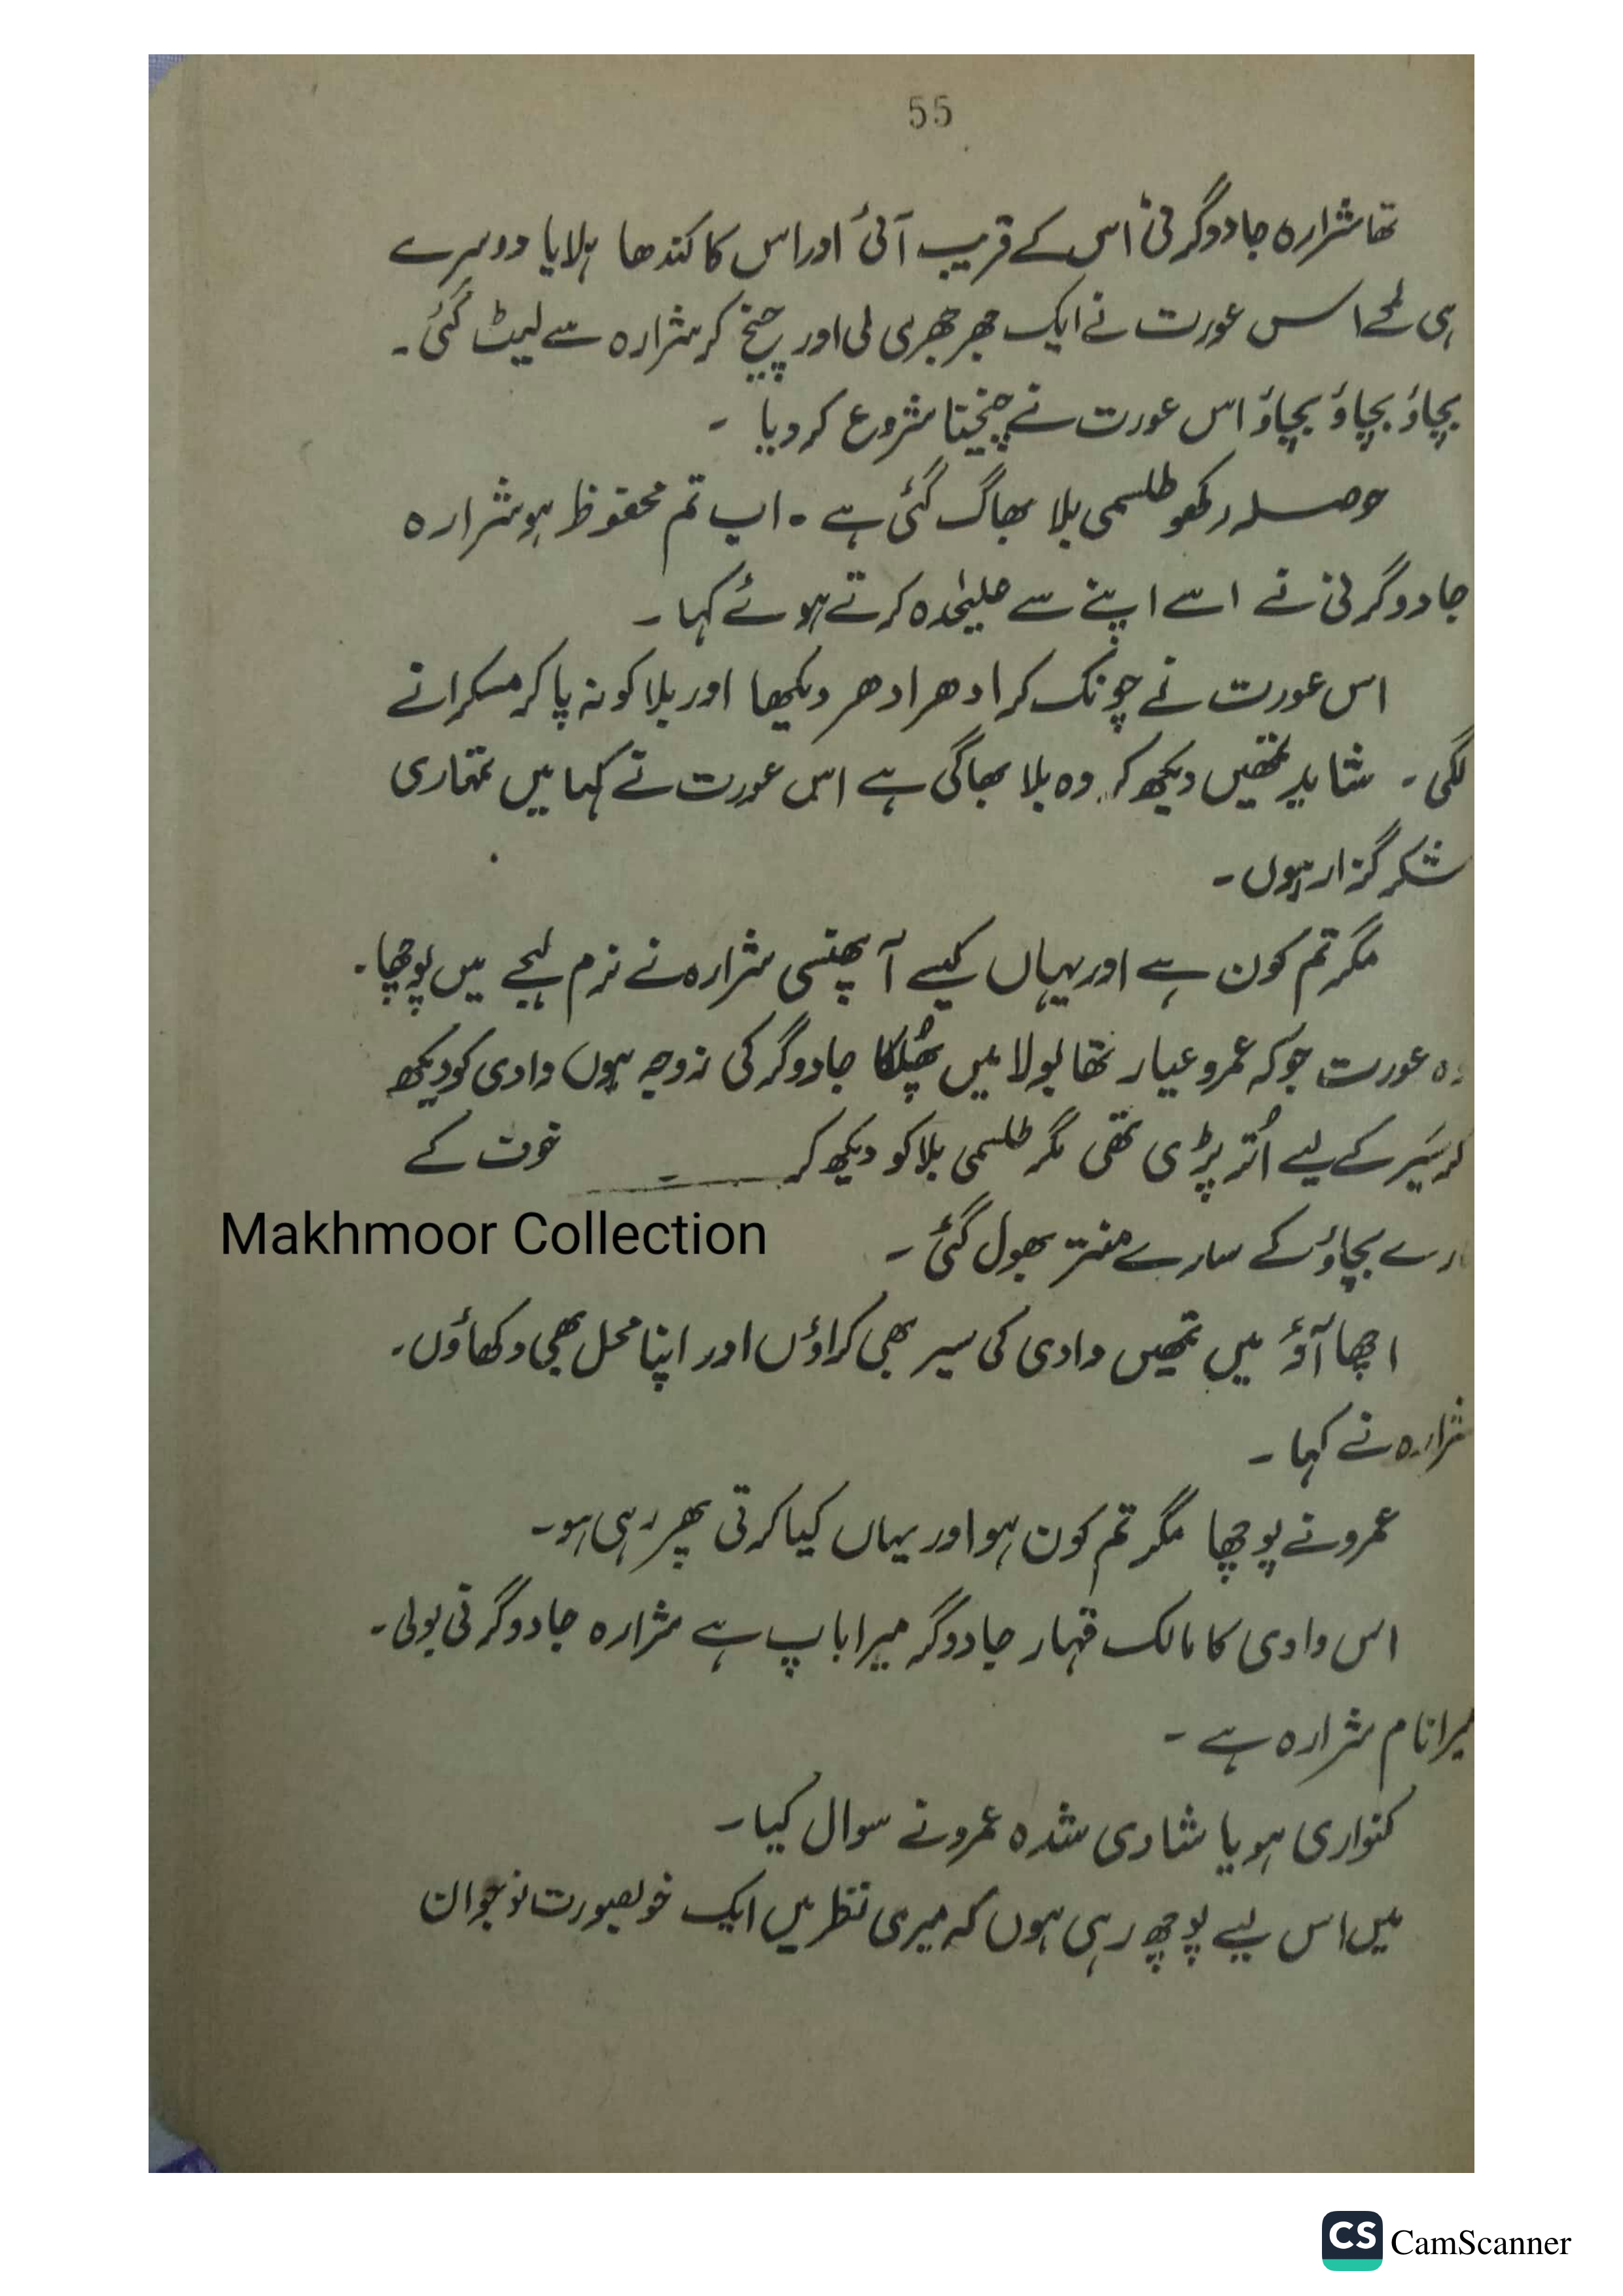 55
تھا شرارہ جادوگرنی اس کے قریب آئی اور اس کا کندھا ہلایا دوسرے
ہی لمحے اس عورت نے ایک جھرجھری لی اور چیخ کر شرارہ سے لپٹ گئی۔
بچاؤ بچاؤ بچاؤ اس عورت نے چیخنا شروع کر دیا۔
حوصلہ رکھو طلسمی بلا بھاگ گئی ہے۔ اب تم محفوظ ہو شرارہ
جادوگرنی نے اسے اپنے سے علیحدہ کرتے ہوئے کہا۔
اس عورت نے چونک کر ادھر ادھر دیکھا اور بلا کو نہ پا کر مسکرانے
لگی۔ شاید تمھیں دیکھ کر وہ بلا بھاگی ہے اس عورت نے کہا میں تمہاری
شکر گزار ہوں۔
مگر تم کون ہے اور یہاں کیسے آ پھنسی شرارہ نے نرم لہجے میں پوچھا۔
وہ عورت جو کہ عمرو عیار تھا بولا میں پھُلکا جادوگر کی زوجہ ہوں وادی کو دیکھ
کر سَیر کے لیے اُتر پڑی تھی مگر طلسمی بلا کو دیکھ کر ــــ خوف کے
مارے بچاؤ کے سارے منتر بھول گئی۔
Makhmoor Collection
اچھا آؤ میں تمھیں وادی کی سیر بھی کراؤں اور اپنا محل بھی دکھاؤں۔
شرارہ نے کہا۔
عمرو نے پوچھا مگر تم کون ہو اور یہاں کیا کرتی پھر رہی ہو۔
اس وادی کا مالک قہار جادوگر میرا باپ ہے شرارہ جادوگرنی بولی۔
میرا نام شرارہ ہے۔
کنواری ہو یا شادی شدہ عمرو نے سوال کیا۔
میں اس لیے پوچھ رہی ہوں کہ میری نظر میں ایک خوبصورت نوجوان
CS CamScanner